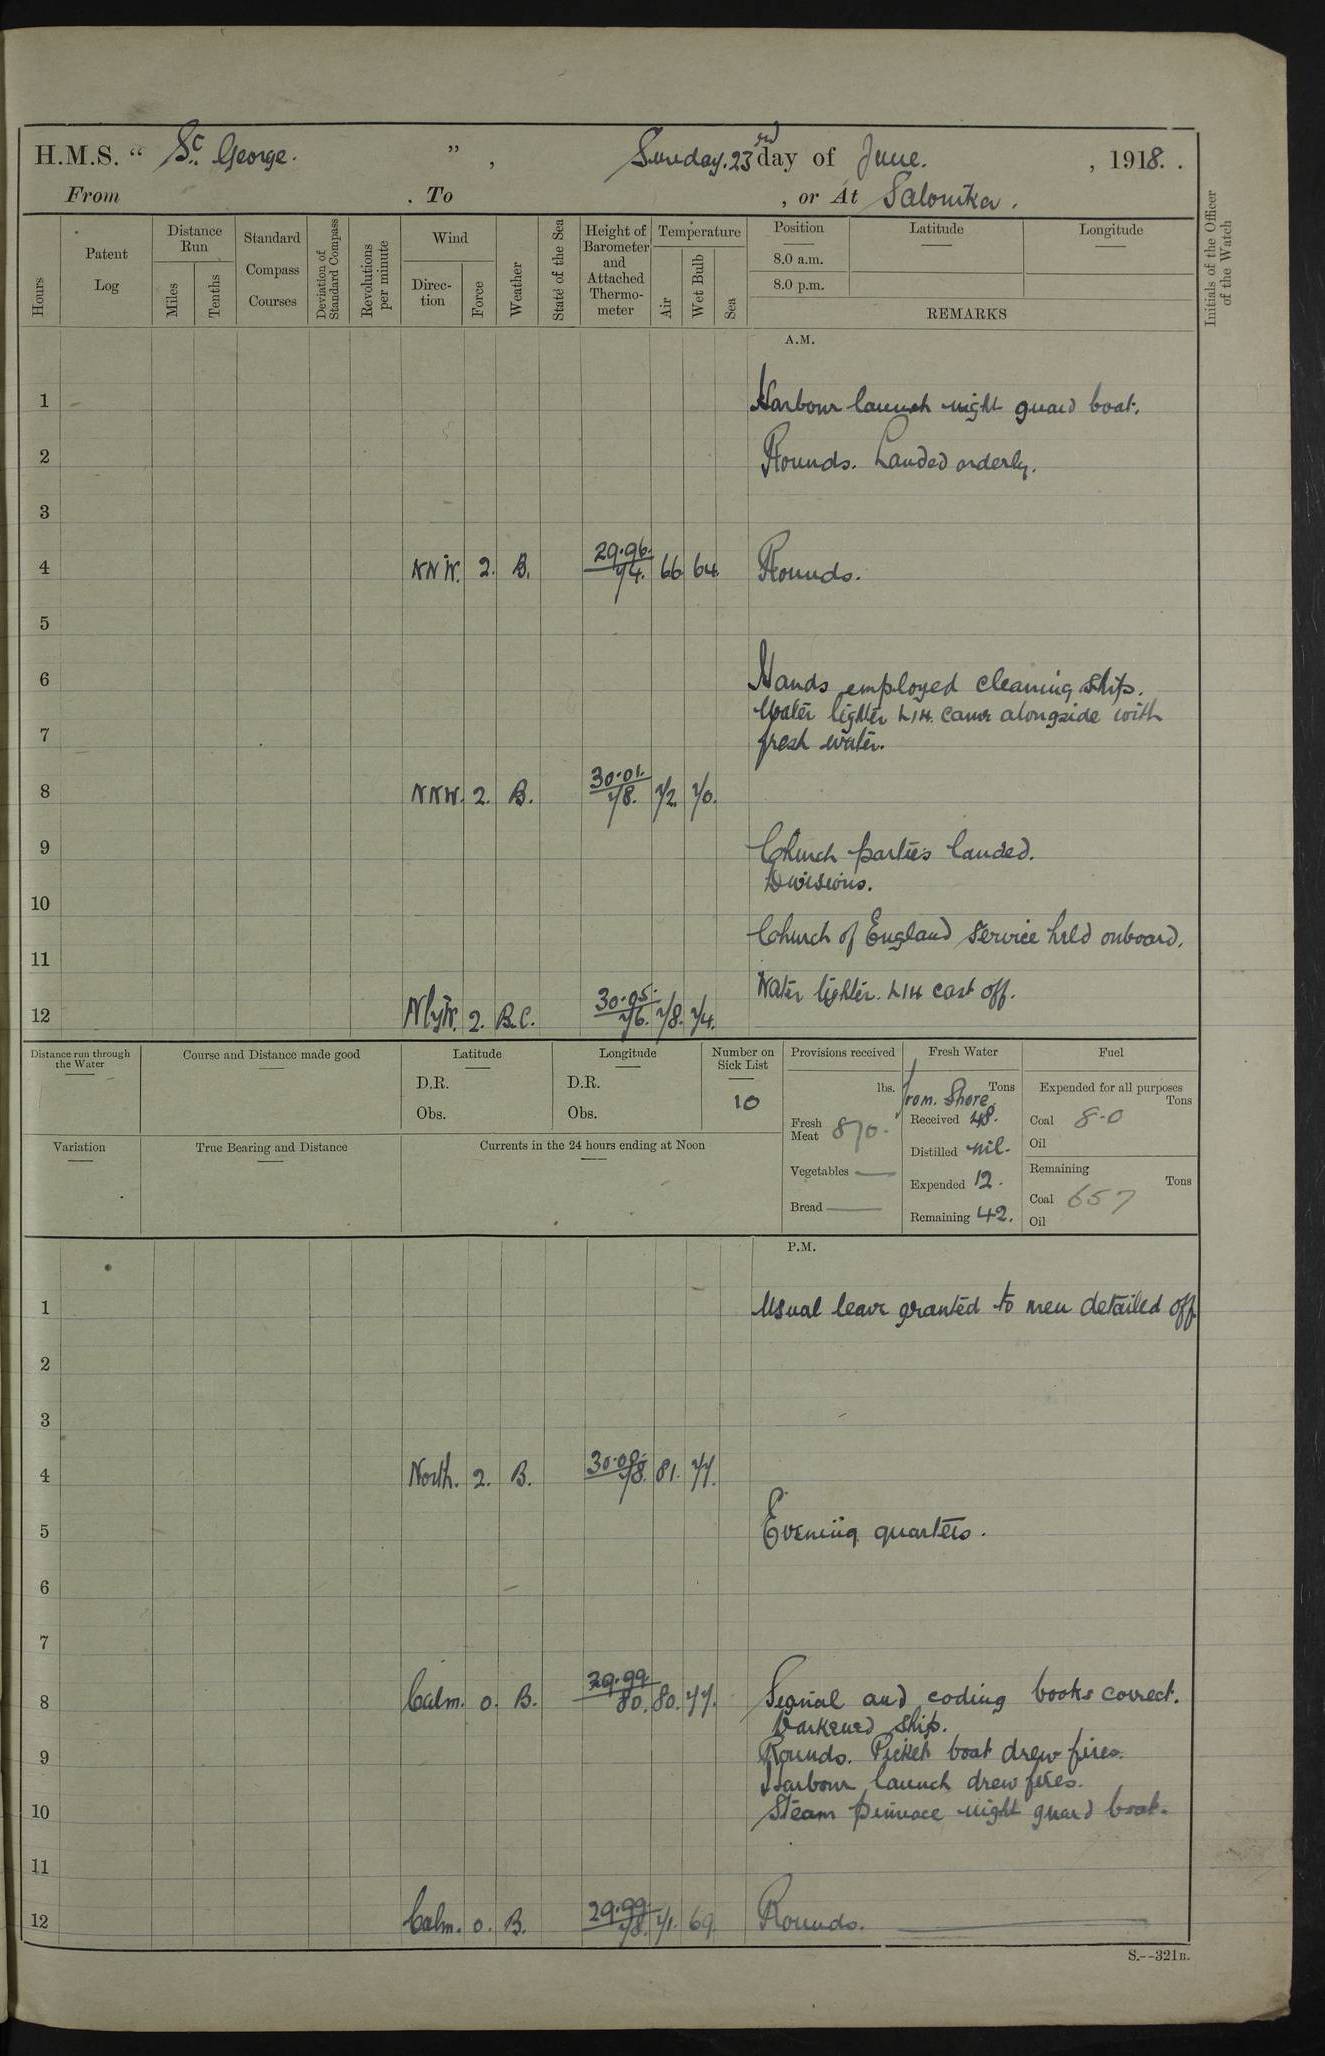 H.M.S. “ St George. ” , Sunday. 23rd day of June. , 1918. .
From . To , or At Salonika .
Hours
Patent Log
Distance Run
Miles
Tenths
Standard Compass Courses
Deviation of Standard Compass
Revolutions per minute
Wind
Direction
Force
Weather
State of the Sea
Height of Barometer and Attached Thermometer
Temperature
Air
Wet Bulb
Sea
Position
8.0 a.m.
8.0 p.m.
Latitude
Longitude
REMARKS
Initials of the Officer of the Watch
A.M.
1 Harbour launch night guard boat.
2 Rounds. Landed orderly.
3
4 NNW. 2. B. 29.96. 74. 66 64. Rounds.
5
6 Hands employed cleaning ship.
Water lighter L14. came alongside with
7 fresh water.
8 NNW. 2. B. 30.01. 78. 72. 70.
9 Church parties landed.
Divisions.
10
Church of England Service held onboard.
11
Water lighter. L14 cast off.
12 NlyW. 2. B.C. 30.05. 76. 78. 74.
Distance run through the Water
Course and Distance made good
Latitude
D.R.
Obs.
Longitude
D.R.
Obs.
Number on Sick List
10
Provisions received
lbs.
Fresh Meat 870.
Vegetables —
Bread —
Fresh Water
Tons
From Shore.
Received 48.
Distilled nil.
Expended 12.
Remaining 42.
Fuel
Expended for all purposes
Tons
Coal 8.0
Oil
Remaining
Tons
Coal 657
Oil
Variation
True Bearing and Distance
Currents in the 24 hours ending at Noon
P.M.
1 Usual leave granted to men detailed off
2
3
4 North. 2. B. 78. 81. 77.
5 Evening quarters.
6
7
8 Calm. 0. B. 29.99 80. 80. 77. Signal and coding books correct.
Darkened ship.
9 Rounds. Picket boat drew fires.
Harbour launch drew fires.
10 Steam pinnace night guard boat.
11
12 Calm. 0. B. 29.99. 78. 71. 69. Rounds.
S.--321B.